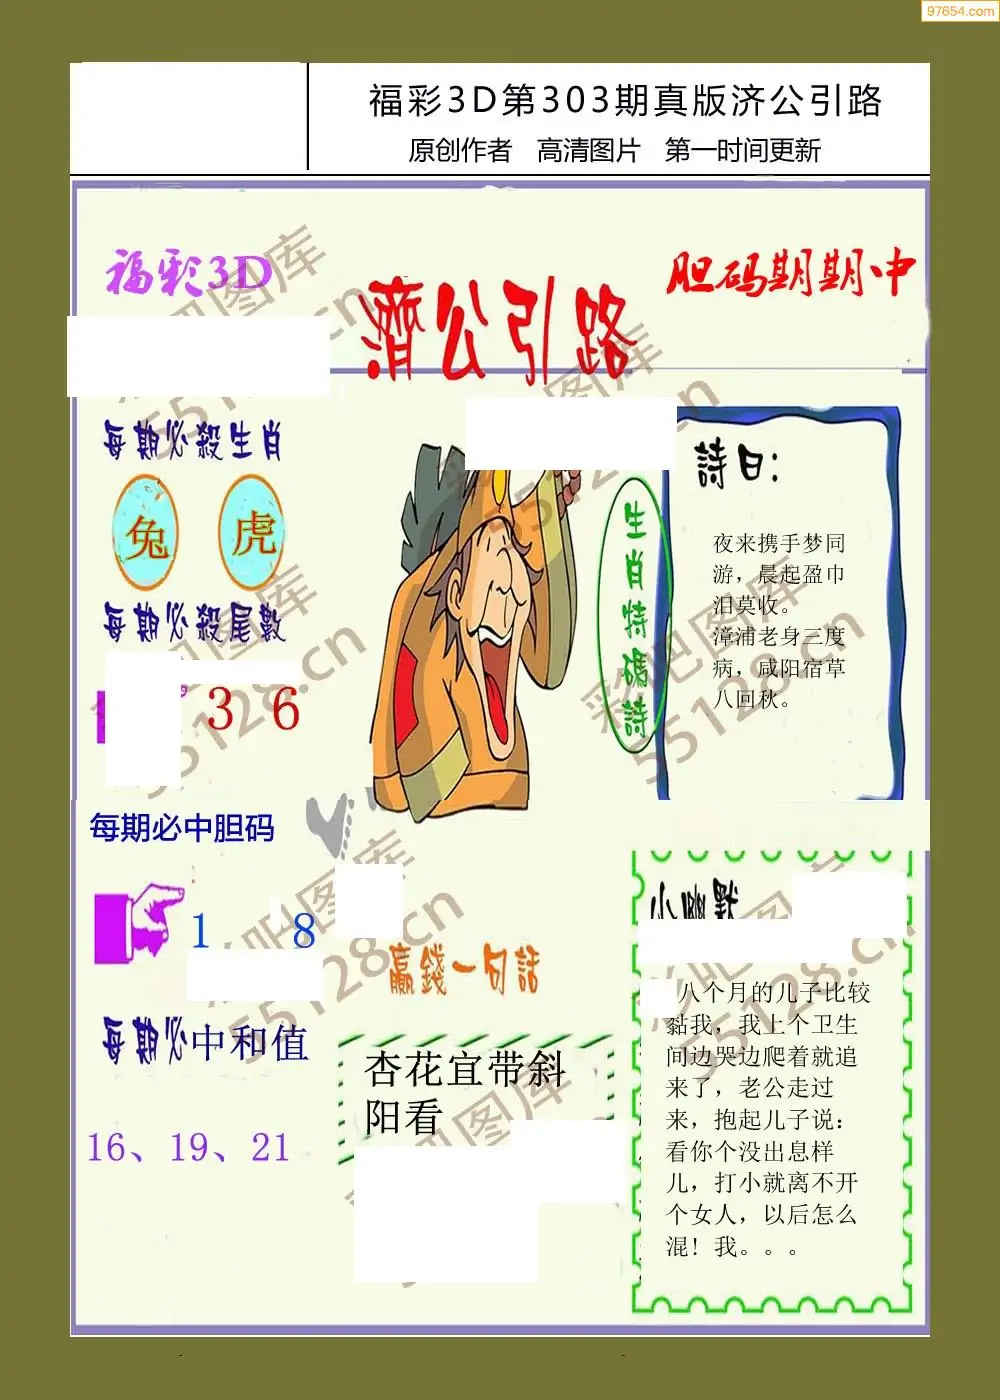 97654.com
福彩3D第303期真版济公引路
原创作者 高清图片 第一时间更新
福彩3D
濟公引路
胆码期期中
每期必殺生肖
兔 虎
每期必殺尾數
3 6
每期必中胆码
1 8
每期必中和值
16、19、21
生肖特碼詩
詩曰：
夜来携手梦同
游，晨起盈巾
泪莫收。
漳浦老身三度
病，咸阳宿草
八回秋。
赢錢一句話
杏花宜带斜
阳看
小幽默
八个月的儿子比较
黏我，我上个卫生
间边哭边爬着就追
来了，老公走过
来，抱起儿子说：
看你个没出息样
儿，打小就离不开
个女人，以后怎么
混！我。。。
彩吧图库
55128.cn
彩吧图库
55128.cn
彩吧图库
55128.cn
彩吧图库
55128.cn